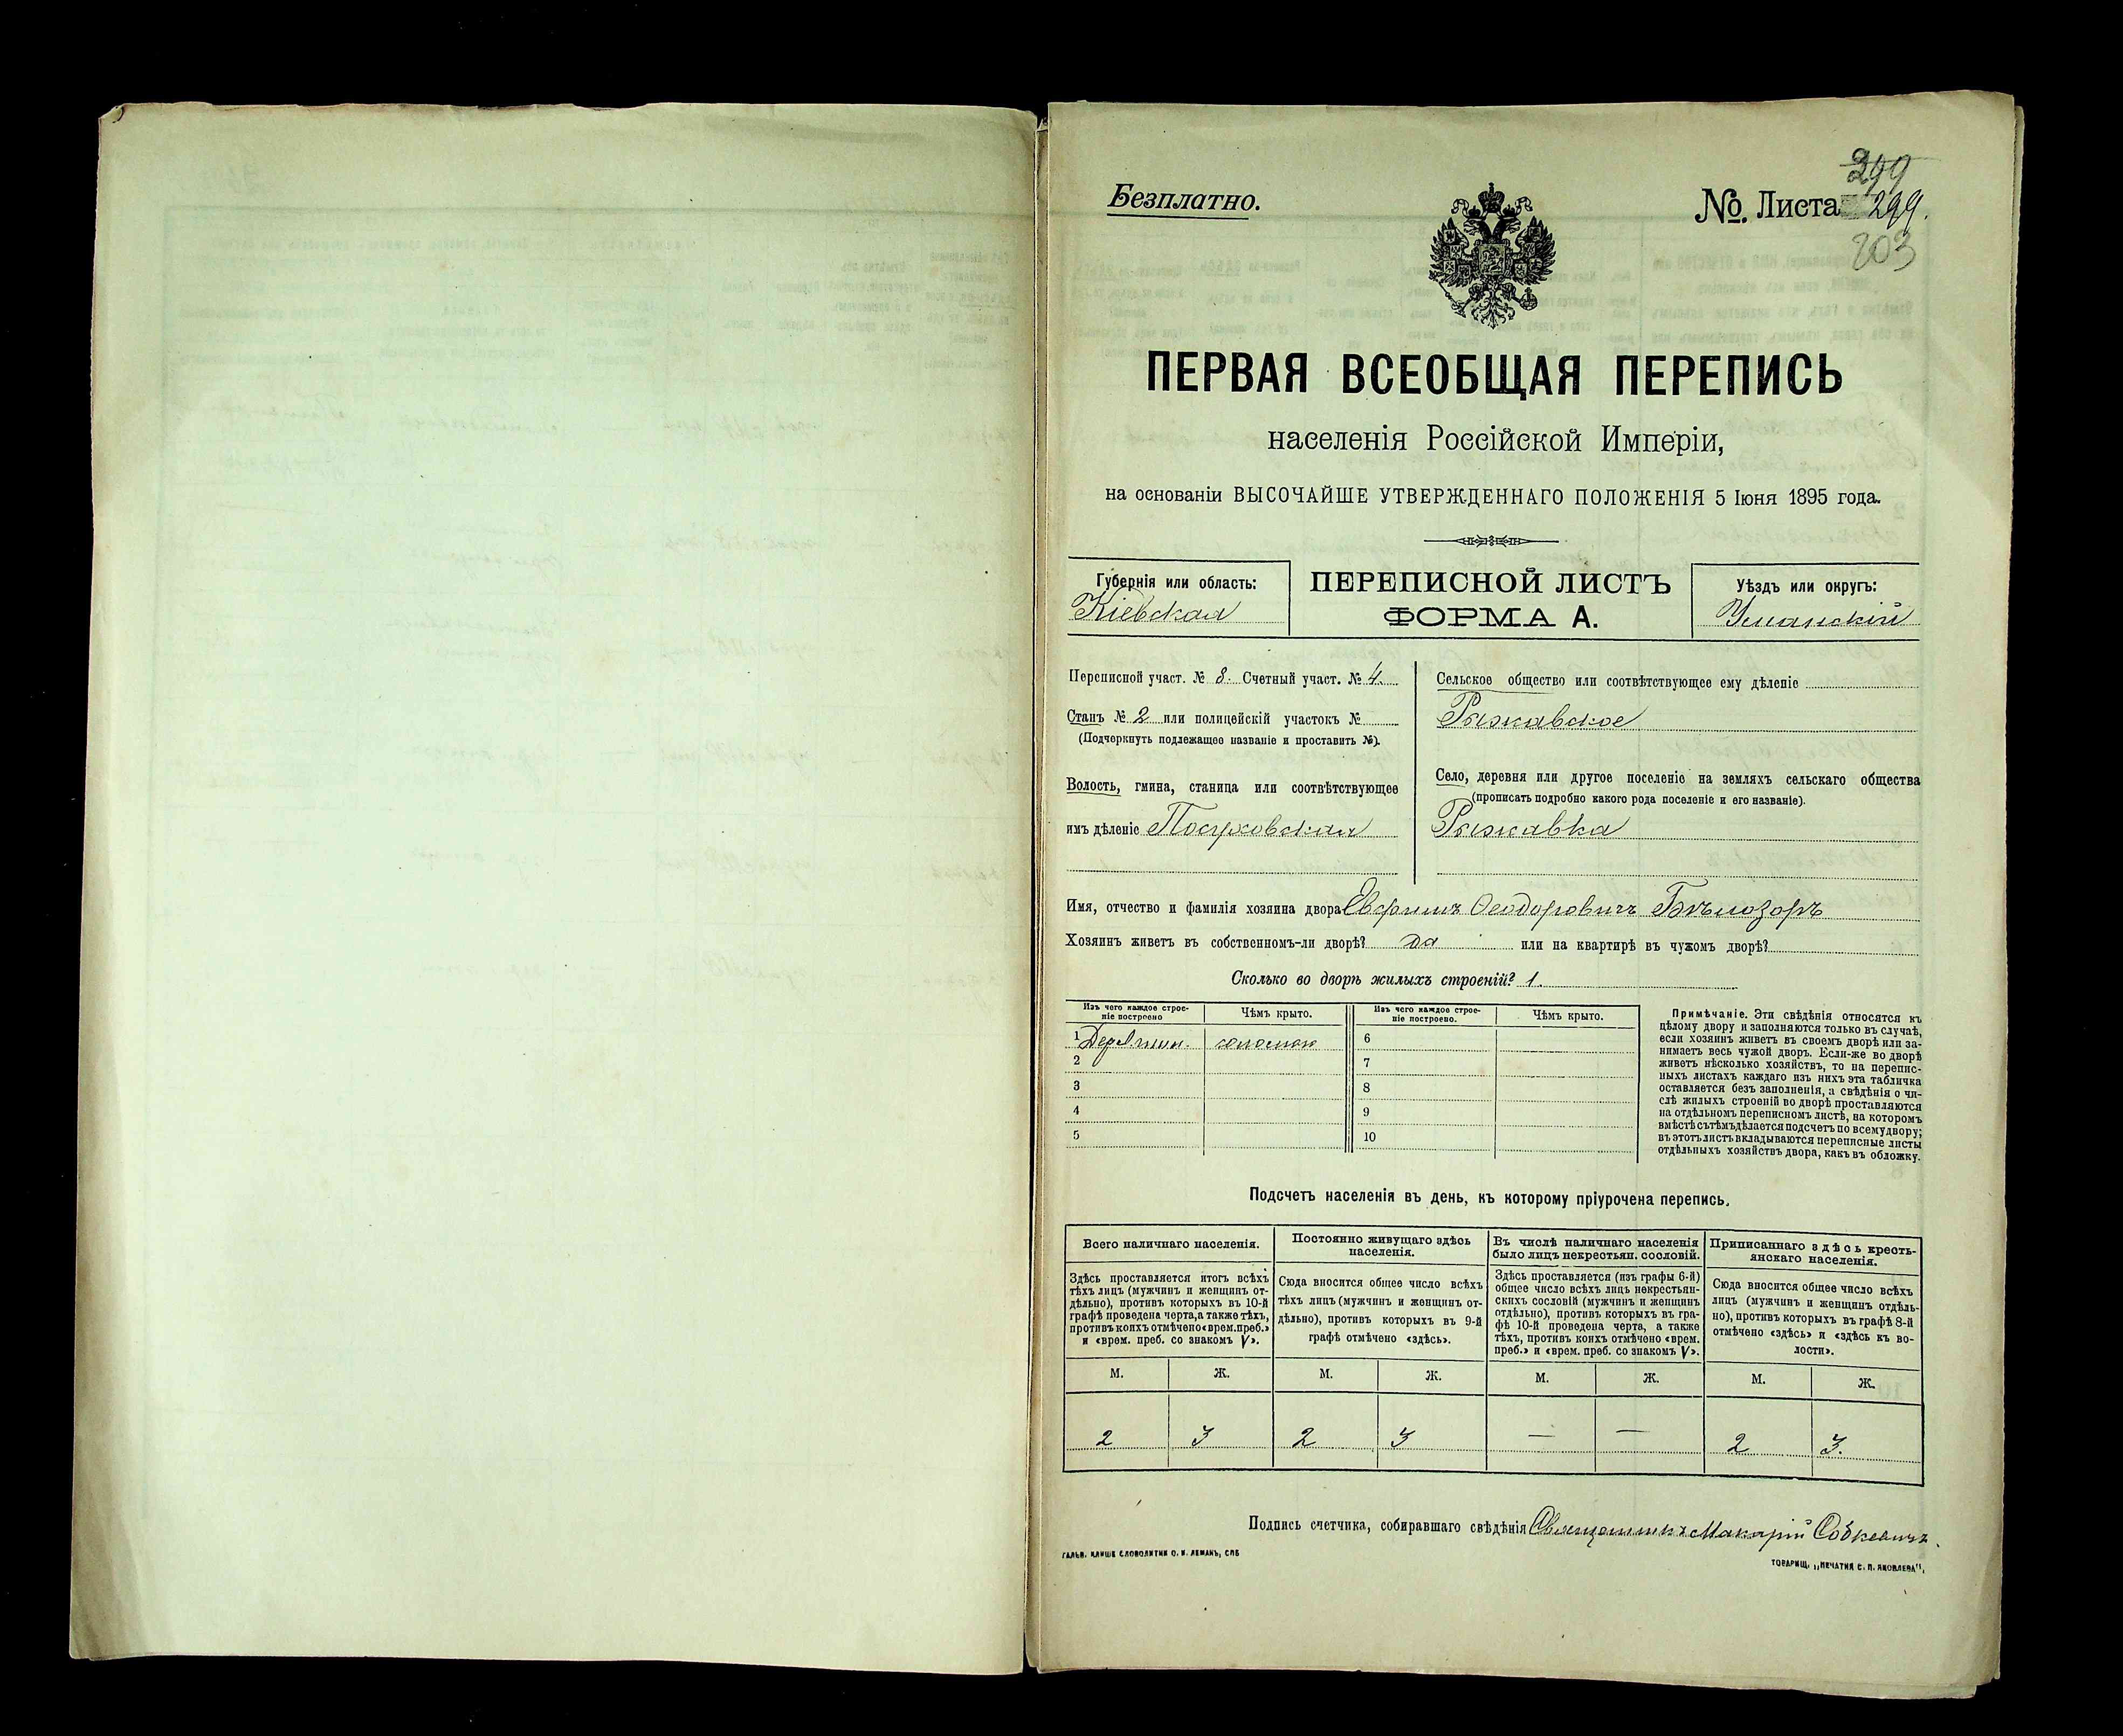 299
Безплатно.
№. Листа 299.
203
ПЕРВАЯ ВСЕОБЩАЯ ПЕРЕПИСЬ
населенія Россійской Имперіи,
на основаніи ВЫСОЧАЙШЕ УТВЕРЖДЕННАГО ПОЛОЖЕНІЯ 5 Іюня 1895 года.
Губернія или область:
Кіевская
ПЕРЕПИСНОЙ ЛИСТЪ
ФОРМА А.
Уѣздъ или округъ:
Уманскій
Переписной участ. № 8. Счетный участ. № 4.
Станъ № 2 или полицейскій участокъ №
(Подчеркнуть подлежащее названіе и проставить №).
Волость, гмина, станица или соотвѣтствующее
имъ дѣленіе Посуховская
Сельское общество или соотвѣтствующее ему дѣленіе
Рыжавское
Село, деревня или другое поселеніе на земляхъ сельскаго общества
(прописать подробно какого рода поселеніе и его названіе).
Рыжавка
Имя, отчество и фамилія хозяина двора Ефимъ Ѳеодоровичъ Бѣлозоръ
Хозяинъ живетъ въ собственномъ-ли дворѣ? да или на квартирѣ въ чужомъ дворѣ?
Сколько во дворѣ жилыхъ строеній? 1.
Изъ чего каждое строе-
ніе построено
Чѣмъ крыто.
Изъ чего каждое строе-
ніе построено.
Чѣмъ крыто.
1 Деревян. соломою
2
3
4
5
6
7
8
9
10
Примѣчаніе. Эти свѣдѣнія относятся къ
цѣлому двору и заполняются только въ случаѣ,
если хозяинъ живетъ въ своемъ дворѣ или за-
нимаетъ весь чужой дворъ. Если-же во дворѣ
живетъ нѣсколько хозяйствъ, то на перепис-
ныхъ листахъ каждаго изъ нихъ эта табличка
оставляется безъ заполненія, а свѣдѣнія о чи-
слѣ жилыхъ строеній во дворѣ проставляются
на отдѣльномъ переписномъ листѣ, на которомъ
вмѣстѣ съ тѣмъ дѣлается подсчетъ по всему двору;
въ этотъ листъ вкладываются переписные листы
отдѣльныхъ хозяйствъ двора, какъ въ обложку.
Подсчетъ населенія въ день, къ которому пріурочена перепись.
Всего наличнаго населенія.
Постоянно живущаго здѣсь
населенія.
Въ числѣ наличнаго населенія
было лицъ некрестьян. сословій.
Приписаннаго здѣсь кресть-
янскаго населенія.
Здѣсь проставляется итогъ всѣхъ
тѣхъ лицъ (мужчинъ и женщинъ от-
дѣльно), противъ которыхъ въ 10-й
графѣ проведена черта, а также тѣхъ,
противъ коихъ отмѣчено «врем. преб.»
и «врем. преб. со знакомъ V».
Сюда вносится общее число всѣхъ
тѣхъ лицъ (мужчинъ и женщинъ от-
дѣльно), противъ которыхъ въ 9-й
графѣ отмѣчено «здѣсь».
Здѣсь проставляется (изъ графы 6-й)
общее число всѣхъ лицъ некрестьян-
скихъ сословій (мужчинъ и женщинъ
отдѣльно), противъ которыхъ въ гра-
фѣ 10-й проведена черта, а также
тѣхъ, противъ коихъ отмѣчено «врем.
преб.» и «врем. преб. со знакомъ V».
Сюда вносится общее число всѣхъ
лицъ (мужчинъ и женщинъ отдѣль-
но), противъ которыхъ въ графѣ 8-й
отмѣчено «здѣсь» и «здѣсь къ во-
лости».
М. Ж. М. Ж. М. Ж. М. Ж.
2 3 2 3 — — 2 3.
Подпись счетчика, собиравшаго свѣдѣнія Священникъ Макарій Собкевичъ.
ГАЛЬВ. КЛИШЕ СЛОВОЛИТНИ О. И. ЛЕМАНЪ, СПБ
ТОВАРИЩ. „ПЕЧАТНЯ С. П. ЯКОВЛЕВА“,